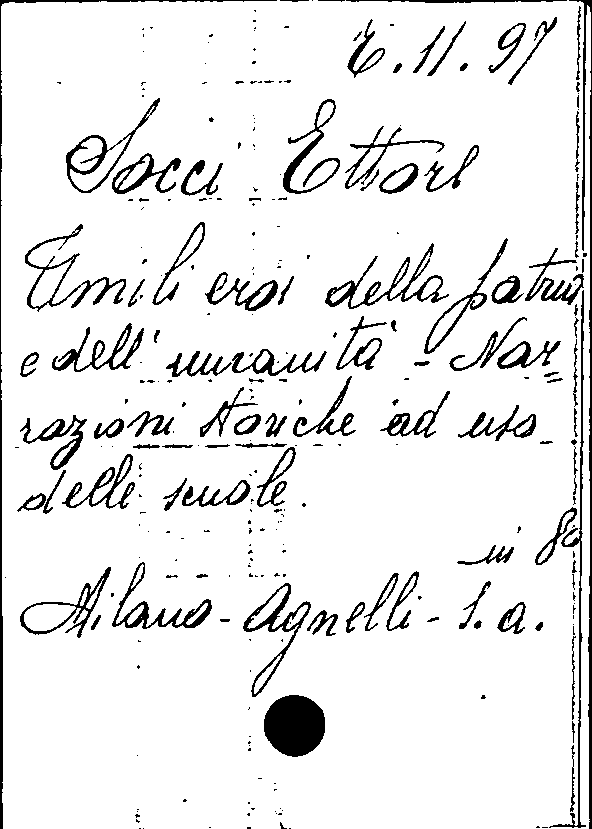 7.11.97
Socci Ettore
Umili eroi della patria
e dell'umanità - Nar=
razioni storiche ad uso
delle scuole.
in 8º
Milano - Agnelli - S. a.